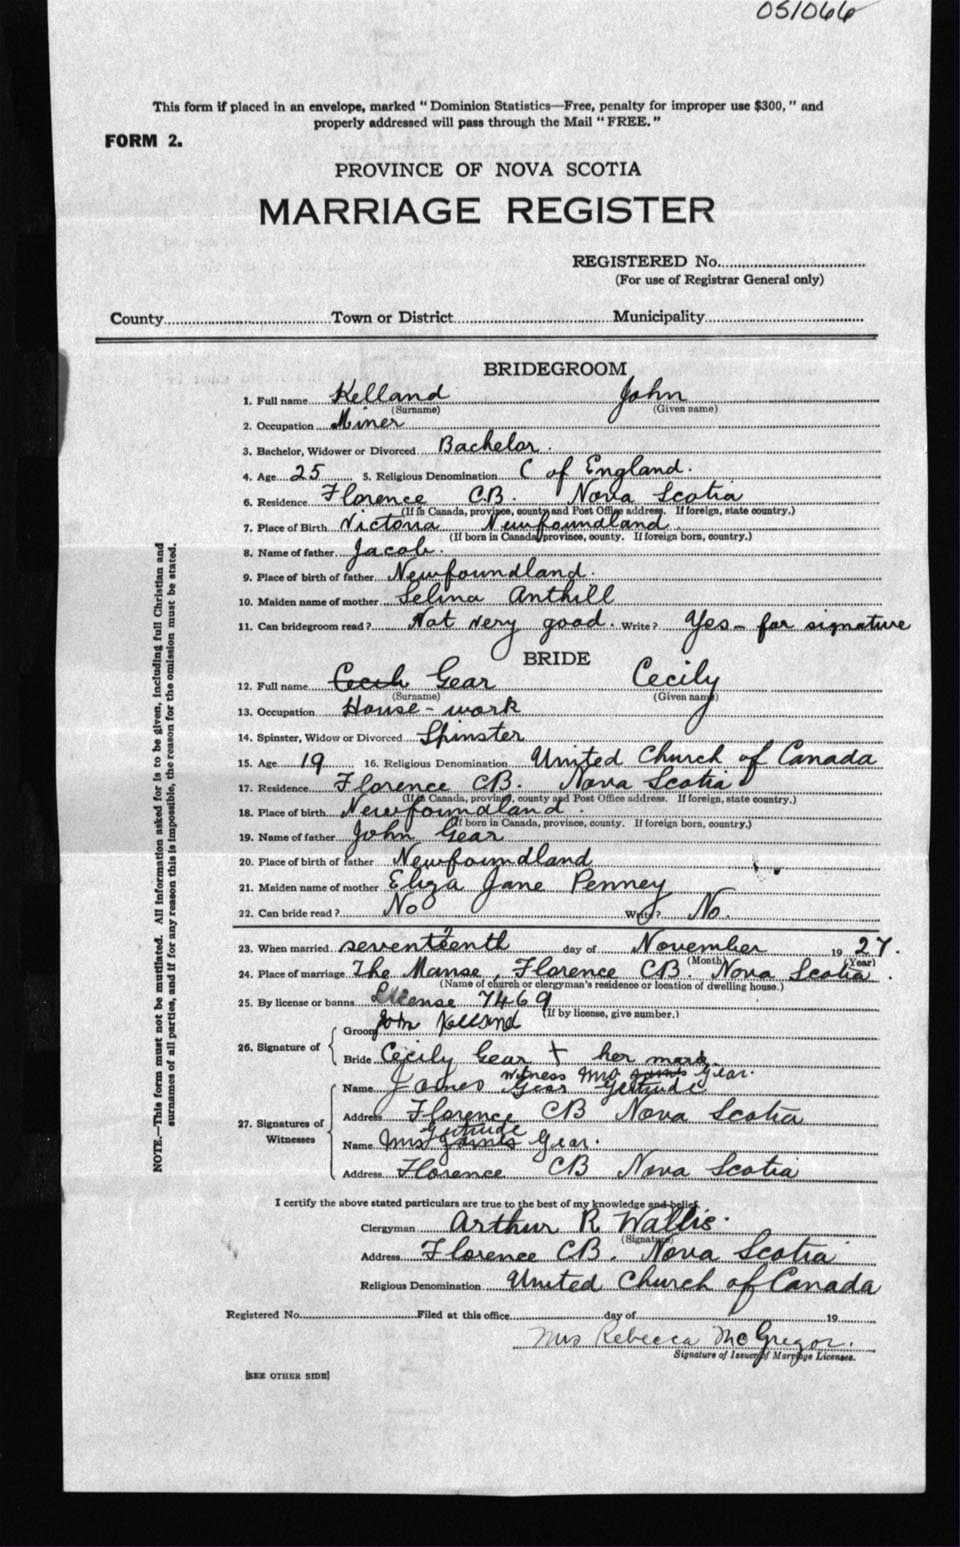 051066
This form if placed in an envelope, marked "Dominion Statistics—Free, penalty for improper use $300," and
properly addressed will pass through the Mail "FREE."
FORM 2.
PROVINCE OF NOVA SCOTIA
MARRIAGE REGISTER
REGISTERED No.
(For use of Registrar General only)
County Town or District Municipality
BRIDEGROOM
1. Full name Kelland John
(Surname) (Given name)
2. Occupation Miner
3. Bachelor, Widower or Divorced Bachelor.
4. Age 25 5. Religious Denomination C of England.
6. Residence Florence CB. Nova Scotia
(If in Canada, province, county and Post Office address. If foreign, state country.)
7. Place of Birth Victoria Newfoundland
(If born in Canada, province, county. If foreign born, country.)
8. Name of father Jacob.
9. Place of birth of father Newfoundland.
10. Maiden name of mother Selina Anthill
11. Can bridegroom read? Not very good. Write? Yes – for signature
BRIDE
12. Full name Gear Cecily
(Surname) (Given name)
13. Occupation House-work
14. Spinster, Widow or Divorced Spinster
15. Age 19 16. Religious Denomination United Church of Canada
17. Residence Florence CB. Nova Scotia
(If in Canada, province, county and Post Office address. If foreign, state country.)
18. Place of birth Newfoundland.
(If born in Canada, province, county. If foreign born, country.)
19. Name of father John Gear
20. Place of birth of father Newfoundland
21. Maiden name of mother Eliza Jane Penney
22. Can bride read? No Write? No.
23. When married seventeenth day of November 19 27.
(Month) (Year)
24. Place of marriage The Manse, Florence CB. Nova Scotia.
(Name of church or clergyman's residence or location of dwelling house.)
25. By license or banns License 7469
(If by license, give number.)
26. Signature of
Groom John Kelland
Bride Cecily Gear + her mark
witness Mrs James Gear.
27. Signatures of
Witnesses
Name James Gear Gertrude
Address Florence CB Nova Scotia
Gertrude
Name Mrs James Gear.
Address Florence CB Nova Scotia
I certify the above stated particulars are true to the best of my knowledge and belief.
Clergyman Arthur R Wallis.
(Signature)
Address Florence CB. Nova Scotia
Religious Denomination United Church of Canada
Registered No. Filed at this office day of 19
Mrs Rebecca McGregor.
Signature of Issuer of Marriage Licenses.
[SEE OTHER SIDE]
NOTE.—This form must not be mutilated. All information asked for is to be given, including full Christian and
surnames of all parties, and if for any reason this is impossible, the reason for the omission must be stated.